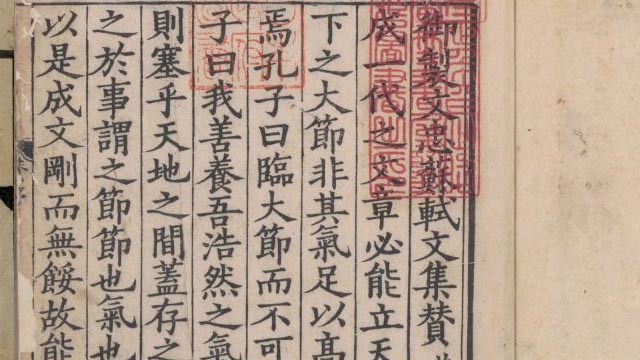 御製文忠蘇軾文集賛
成一代之文章必能立天
下之大節非其氣足以高
焉孔子曰臨大節而不可
子曰我善養吾浩然之氣
則塞乎天地之間蓋存之
之於事謂之節節也氣也
以是成文剛而無餒故能